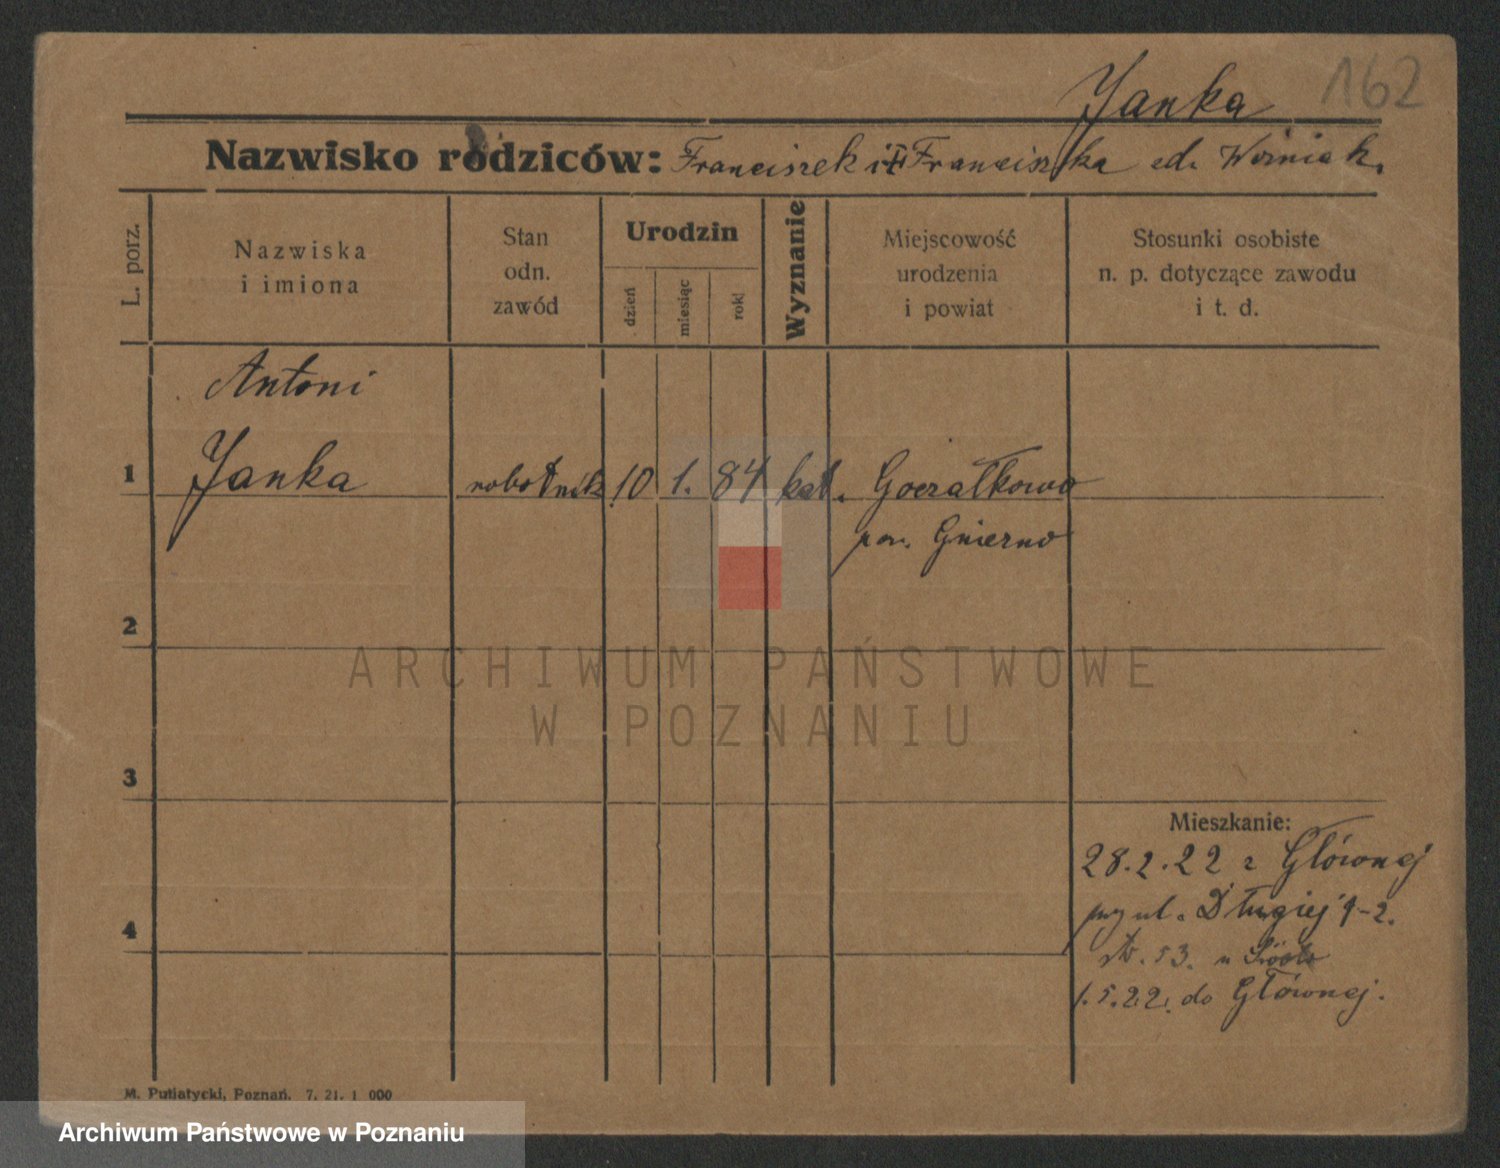 162
Janka
Nazwisko rodziców: Franciszek i Franciszka Woźniak.
L. porz.
Nazwiska
i imiona
Stan
odn.
zawód
Urodzin
dzień
miesiąc
rok
Wyznanie
Miejscowość
urodzenia
i powiat
Stosunki osobiste
n. p. dotyczące zawodu
i t. d.
Antoni
1 Janka robotnik 10 1. 84 kat. Gorzałkowo
pow. Gniezno
2
ARCHIWUM PAŃSTWOWE
W POZNANIU
3
Mieszkanie:
28.2.22 z Głównej
przy ul. Długiej 1-2.
4
53. u
1.5.22. do Głównej.
M. Putiatycki, Poznań. 7. 21. 1 000
Archiwum Państwowe w Poznaniu